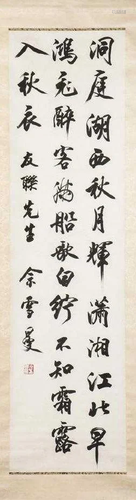 洞庭湖西秋月輝瀟湘江北早
鴻飛醉客滿船歌白紵不知霜露
入秋衣 友聯先生 佘雪曼